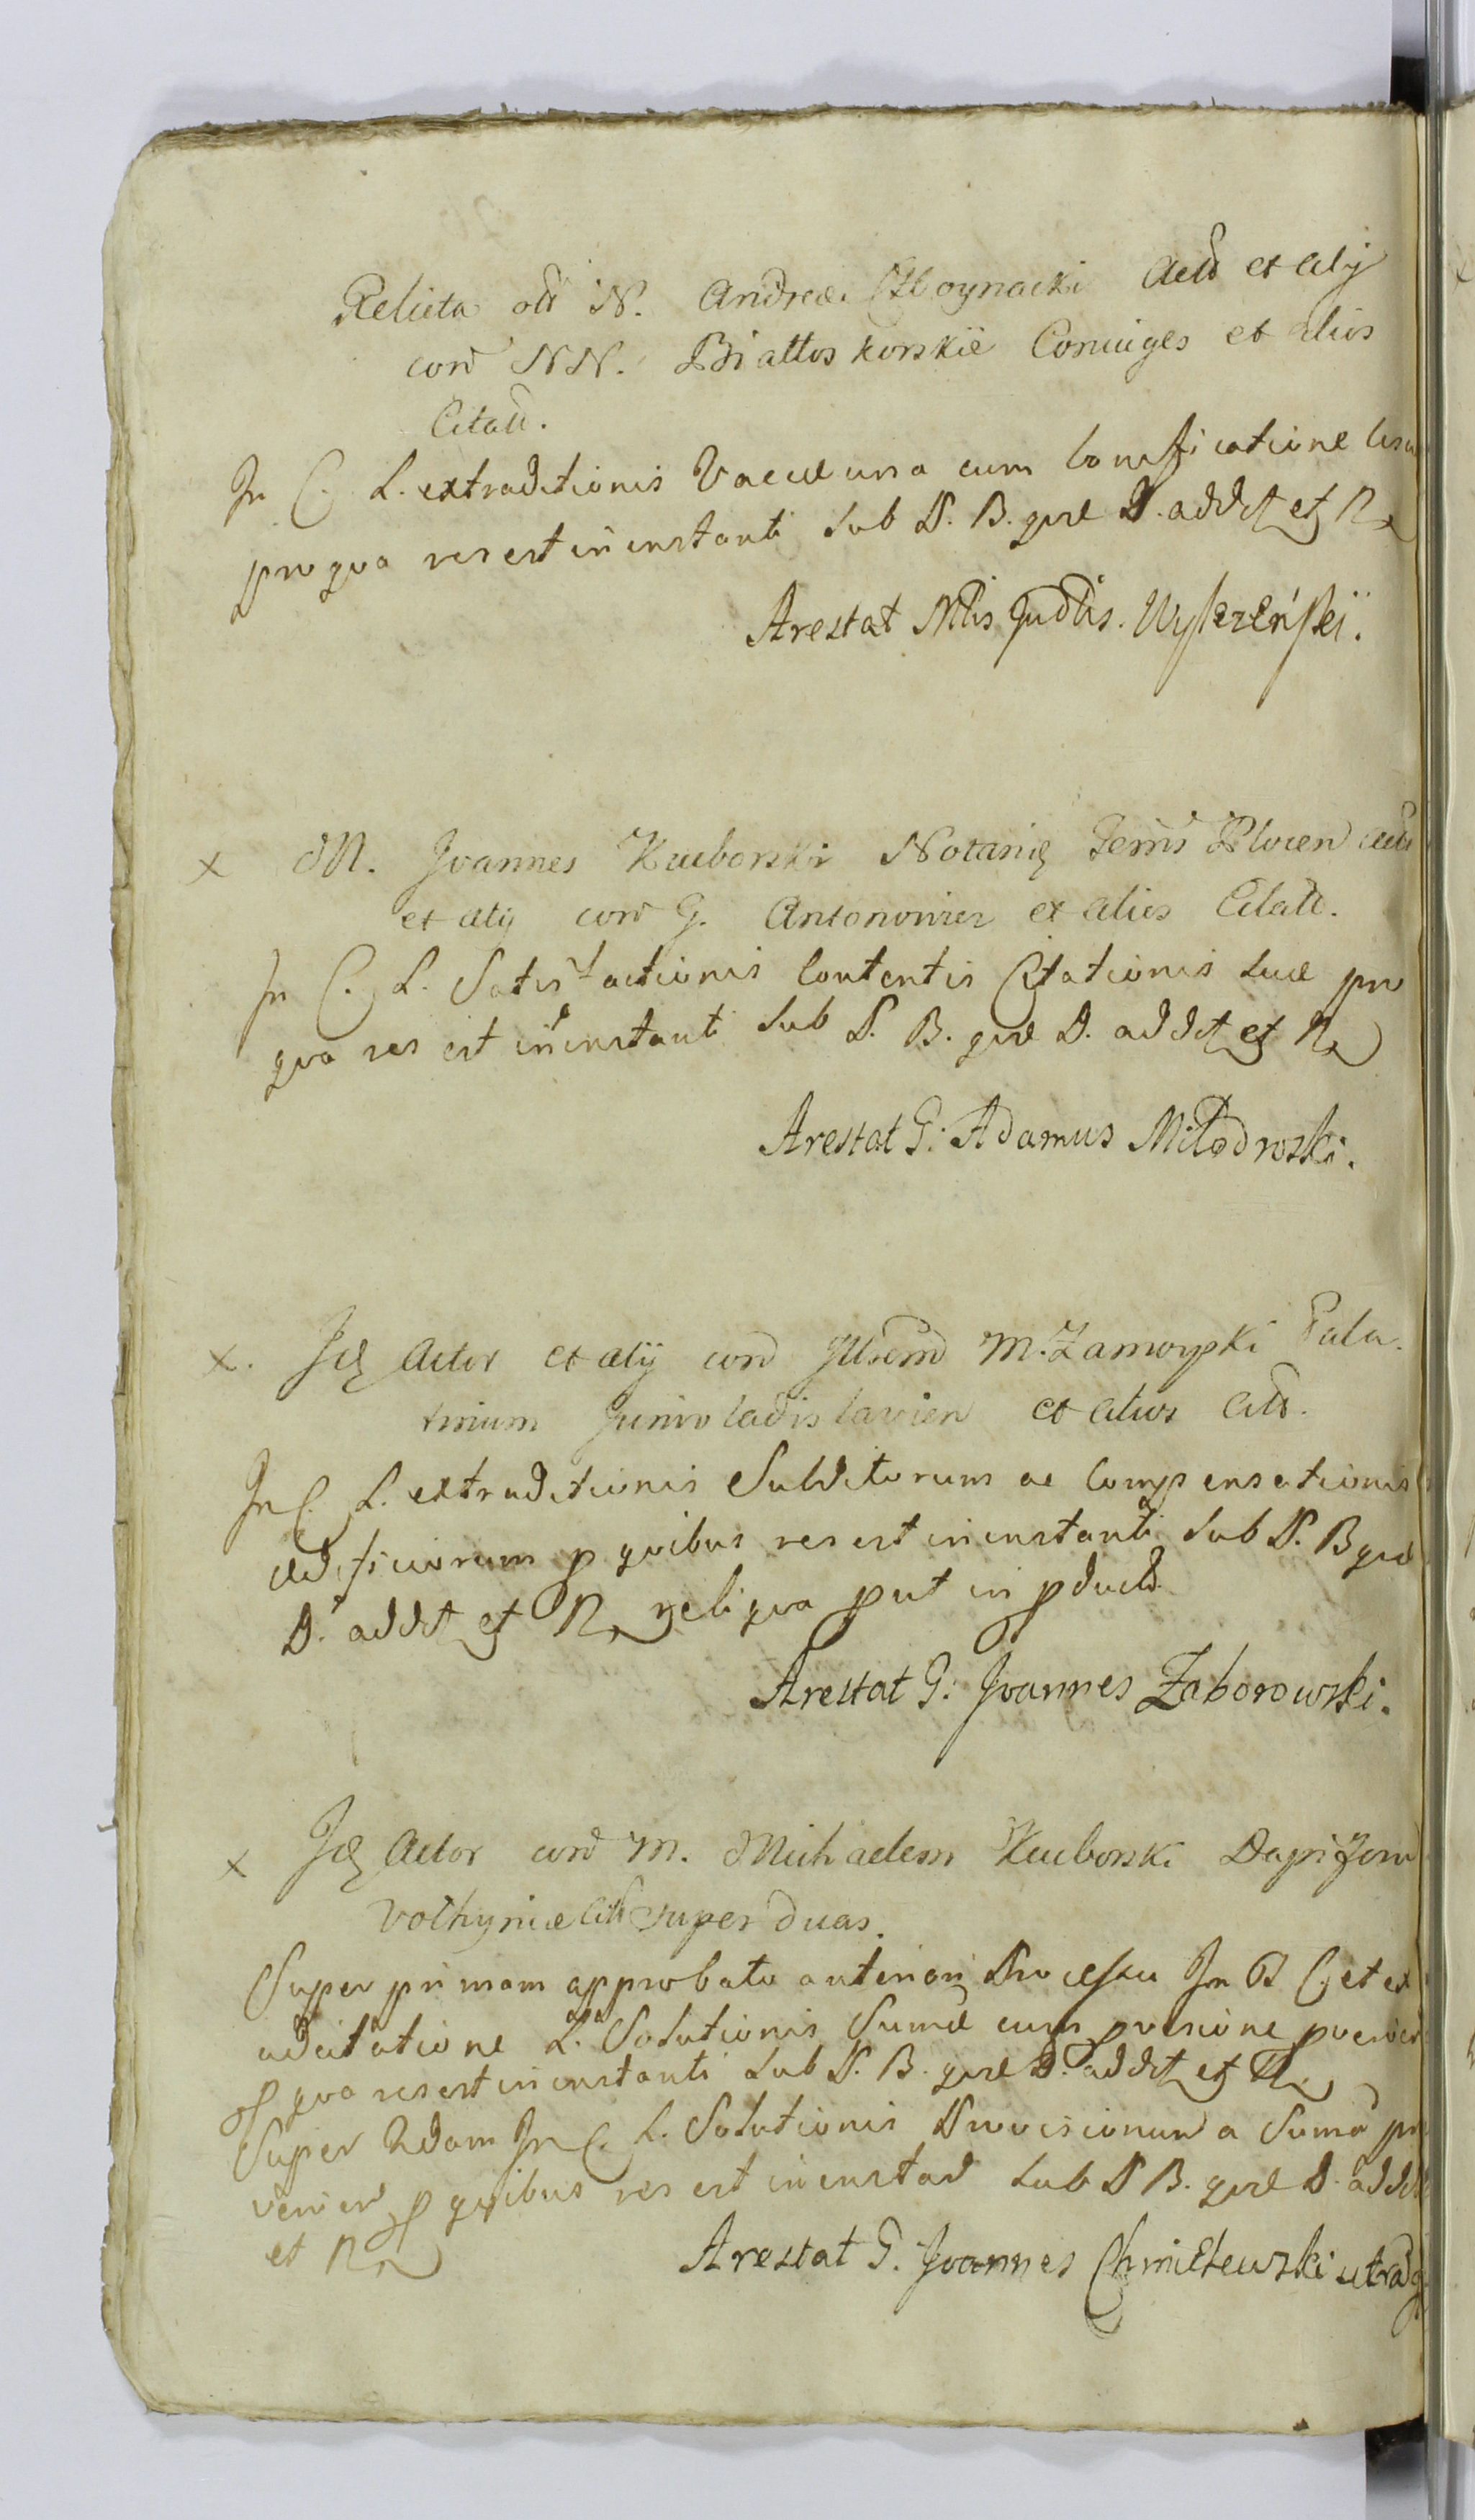 Relicta olt N. Andreæ Zboynacki Act et alij
con NN. Biattoskorskie Coniuges et alios
Citatt.
In C. L. extraditionis Vaccæ una cum bonificatione
pro qva res est in instanti sub P. B. qvæ D. addit et R
Arestat Nlis Judlis. Wyssezeński.
x M. Joannes Kuborski Notarius Terris Plocen
et alij con G. Antonowicz et alios Citatt.
In C. L. Satisfactionis Contentis Citationis suæ pro
qva res est in instanti sub P. B. qvæ D. addit et R
Arestat G: Adamus Miłodroski.
x. Id Actor et alij con Illrem M. Zamoyski Pala-
tinum Junivladislavien et alios Citt.
In C. L. extraditionis Subditorum ac compensationis
ædificiorum p qvibus res est in instanti sub P. B qvæ
D. addit et R reliqva put in pduct.
Arestat G: Joannes Zaborowski.
x Id Actor con M. Michaelem Kuborski Dapiferu
Volhyniæ Citt super duas.
Super primam approbato anteriori Processu In C et ex
adcitatione L. Solutionis Sumæ cum provisione
p qva res est in instanti sub P. B. qvæ D. addit et R
Super 2dam In C. L. Solutionis Provisionum a Suma pro
venien p qvibus res est in instan sub P B. qvæ D. addit
et R
Arestat G. Joannes Chmielewski utraq